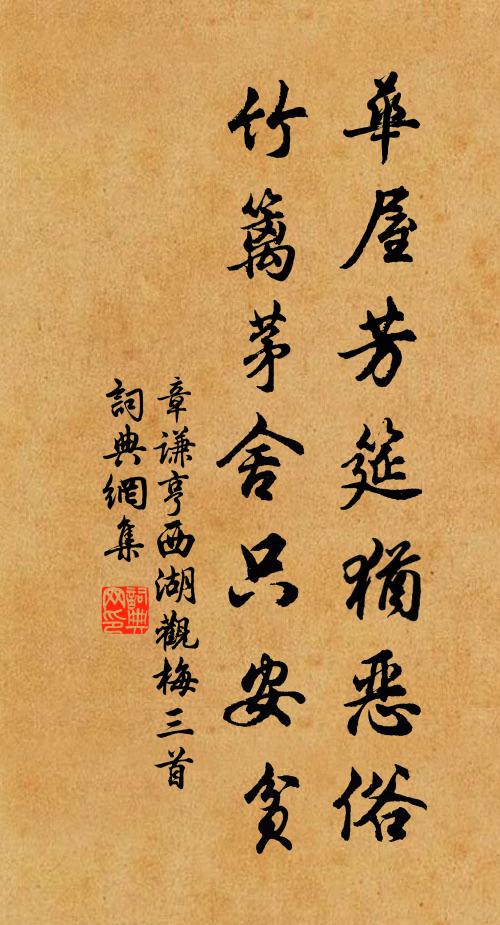 華屋芳筵猶惡俗
竹籬茅舍只安貧
章謙亨西湖觀梅三首
詞典網集
詞典网印